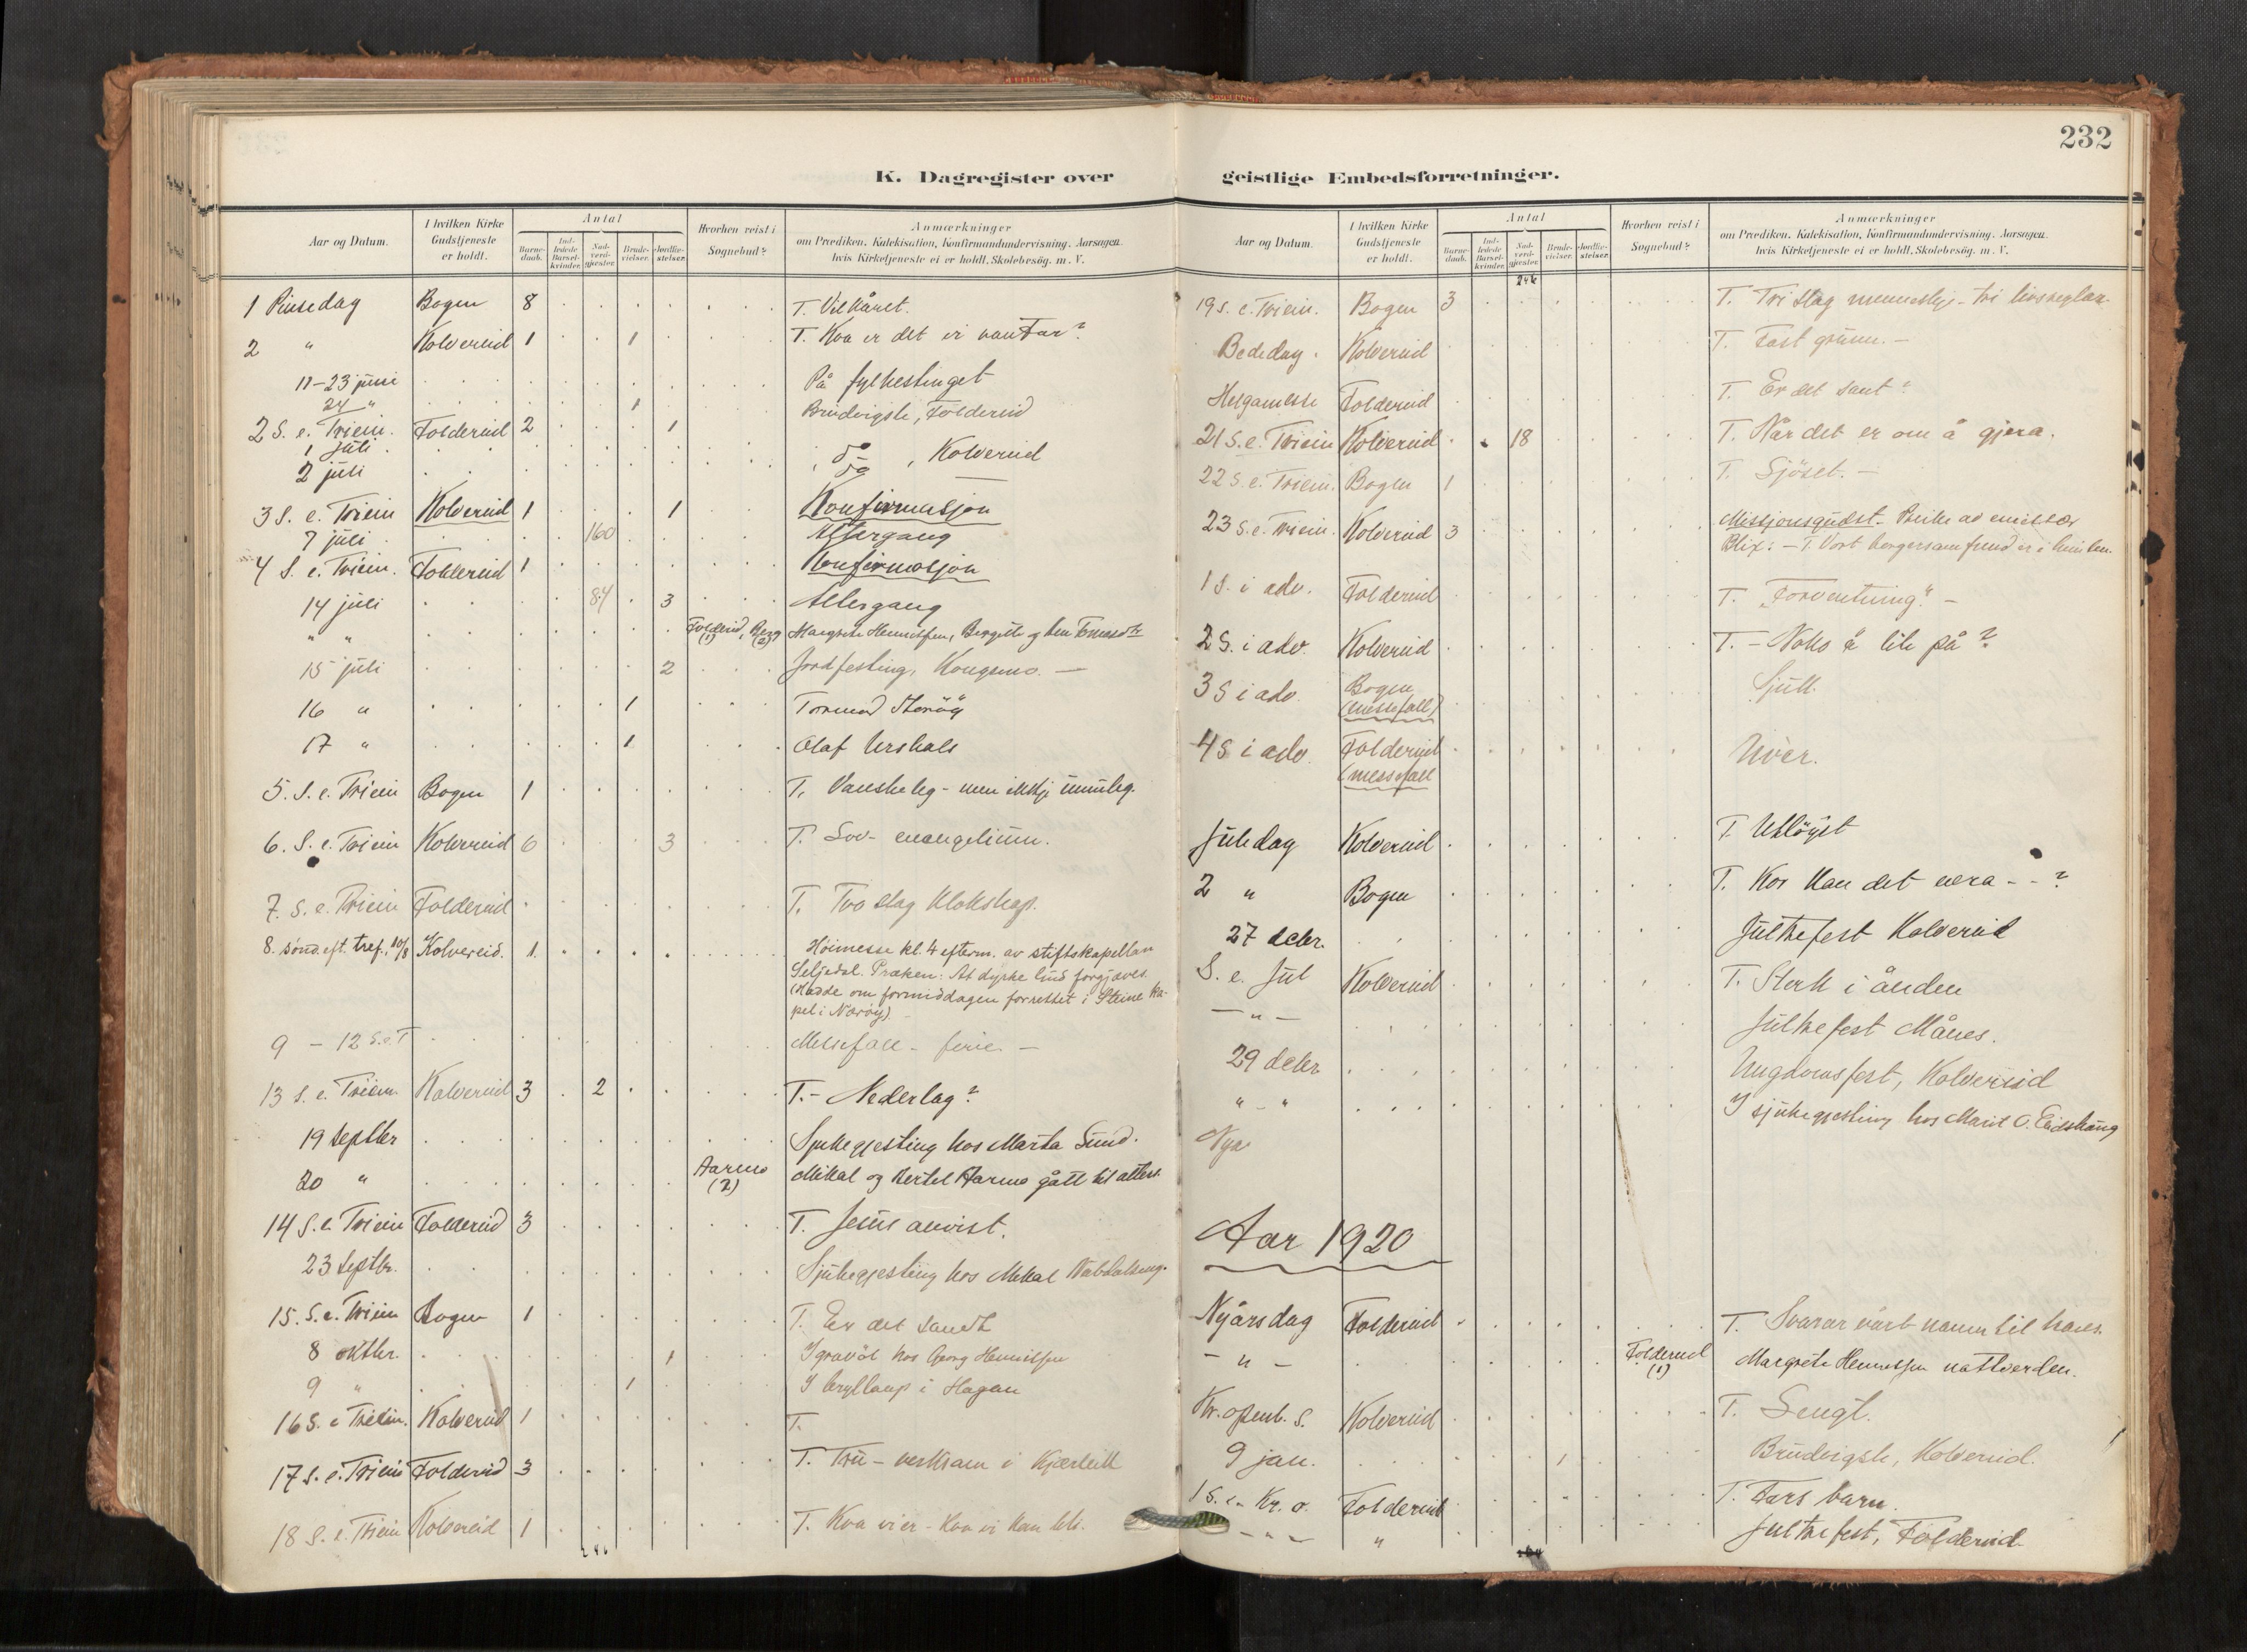 232
K. Dagregister over geistlige Embedsforretninger.
Aar og Datum. I hvilken Kirke Gudstjeneste er holdt. Antal Barnedaab. Indledede Barselkvinder. Nadverdgjester. Brudevielser. Jordfæstelser. Hvorhen reist i Sognebud? Anmærkninger om Prædiken, Katekisation, Konfirmandundervisning. Aarsagen hvis Kirketjeneste ei er holdt, Skolebesög. m. V.
1 Pinsedag Bogen 8 T. Vilkåret.
2 " Kolvereid 1 1 T. Kva er det vi vantar?
11-23 juni På fylkestinget
24 " 1 Brudvigsle, Foldereid
2 S. e. Triein. Foldereid 2 1
1 juli. do, Kolvereid
2 juli do
3 S. e. Triein Kolvereid 1 1 Konfirmasjon
7 juli 160 Altergang
4 S. e. Triein. Foldereid 1 Konfirmasjon
14 juli 84 3 Altergang
" " Foldereid (1) Berg (2) Margrete Henriksen, Bergitte og
15 juli 2 Jordfesting, Kongsmo. —
16 " 1 Tormod Storöy
17 " 1 Olaf Urskals
5. S. e. Triein Bogen 1 T. Vanskeleg - men ikkje umuleg.
6. S. e. Triein Kolvereid 6 3 T. Lov - evangelium.
7. S. e. Triein Foldereid T. Two slag klokskap.
8. sönd. eft. tref., 10/8 Kolvereid. 1. Höimesse kl. 4 efterm. av stiftskapellan
Seljedal. Præken: At dyrke Gud forgjæves.
(Hadde om formiddagen forrettet i Steine Ka-
pel i Nærøy).
9 - 12 S.e.T Messefall - ferie. —
13 S. e. Triein. Kolvereid 3 2 T. - Nederlag?
19 septbr Sjukegjesting hos Marta Sund.
20 " Aarmo (2) Mikal og Kertel Aarmo gått til alters.
14 S. e. Triein Foldereid 3 T. Jesus
23 septbr. Sjukegjesting hos Mikal
15. S. e. Triein Bogen 1 T. Er det sandt
8 oktbr. 1 I gravöl hos Georg Henriksen
9 " 1 I bryllaup i Hagan
16 S. e Triein. Kolvereid 1 T.
17 S. e. Triein Foldereid 3 T. Tru - verksam i kjærleik
18 S. e. Triein Kolvereid 1 T. Kva vi er - kva vi kan bli.
246
Aar og Datum. I hvilken Kirke Gudstjeneste er holdt. Antal Barnedaab. Indledede Barselkvinder. Nadverdgjester. Brudevielser. Jordfæstelser. Hvorhen reist i Sognebud? Anmærkninger om Prædiken, Katekisation, Konfirmandundervisning. Aarsagen hvis Kirketjeneste ei er holdt, Skolebesög. m. V.
246
19 S. e. Triein. Bogen 3 T. Tri slag menneskje - tri livsreglar.
Bededag. Kolvereid T. Fast grunn. —
Helgamesse Foldereid T. Er det sant?
21 S. e. Triein Kolvereid 18 T. Når det er om å gjera.
22 S. e. Triein. Bogen 1 T. Sjöset. —
23 S. e. Triein. Kolvereid 3 Missjonsgudst. Preike av emissær
Blix: - T. Vort borgersamfund er i himlen.
1 S. i adv. Foldereid T. "Forventning". —
2 S. i adv. Kolvereid T. - Noko å lite på?
3 S i adv. Bogen (messefall) Sjuk.
4 S i adv. Foldereid (messefall Uvêr.
Juledag Kolvereid T. Utlöyst
2 " Bogen T. Kor kan det vera - - ?
27 debr. Jultrefest Kolvereid
S. e. Jul Kolvereid T. Sterk i ånden
— " — Jultrefest Månes.
29 debr Ungdomsfest, Kolvereid
" - " I sjukegjesting hos Marit O. Eidshaug
Nya
Aar 1920
Nyårsdag Foldereid T. Svarar vårt namn til hans.
— " — Foldereid (1) Margrete Henriksen nattverden.
Kr. openb. S. Kolvereid T. Lengt.
9 jan. 1 Brudvigsle, Kolvereid.
1 S. e. Kr. o. Foldereid T. Fars barn.
- " - " Jultrefest, Foldereid.